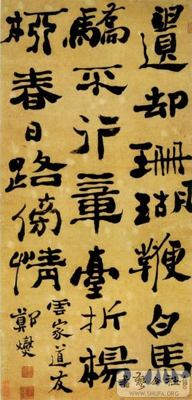 遺却珊瑚鞭白馬
驕不行章臺折楊
柳春日路傍情
雲家道友
鄭燮
WWW.SHUFA.ORG